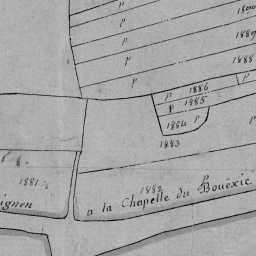 p
p
p
p
p
p 1886
p
p 1885
1884 p
1883
p
1881
1882 p
a la Chapelle du Bouëxic
ignon
1889
1888